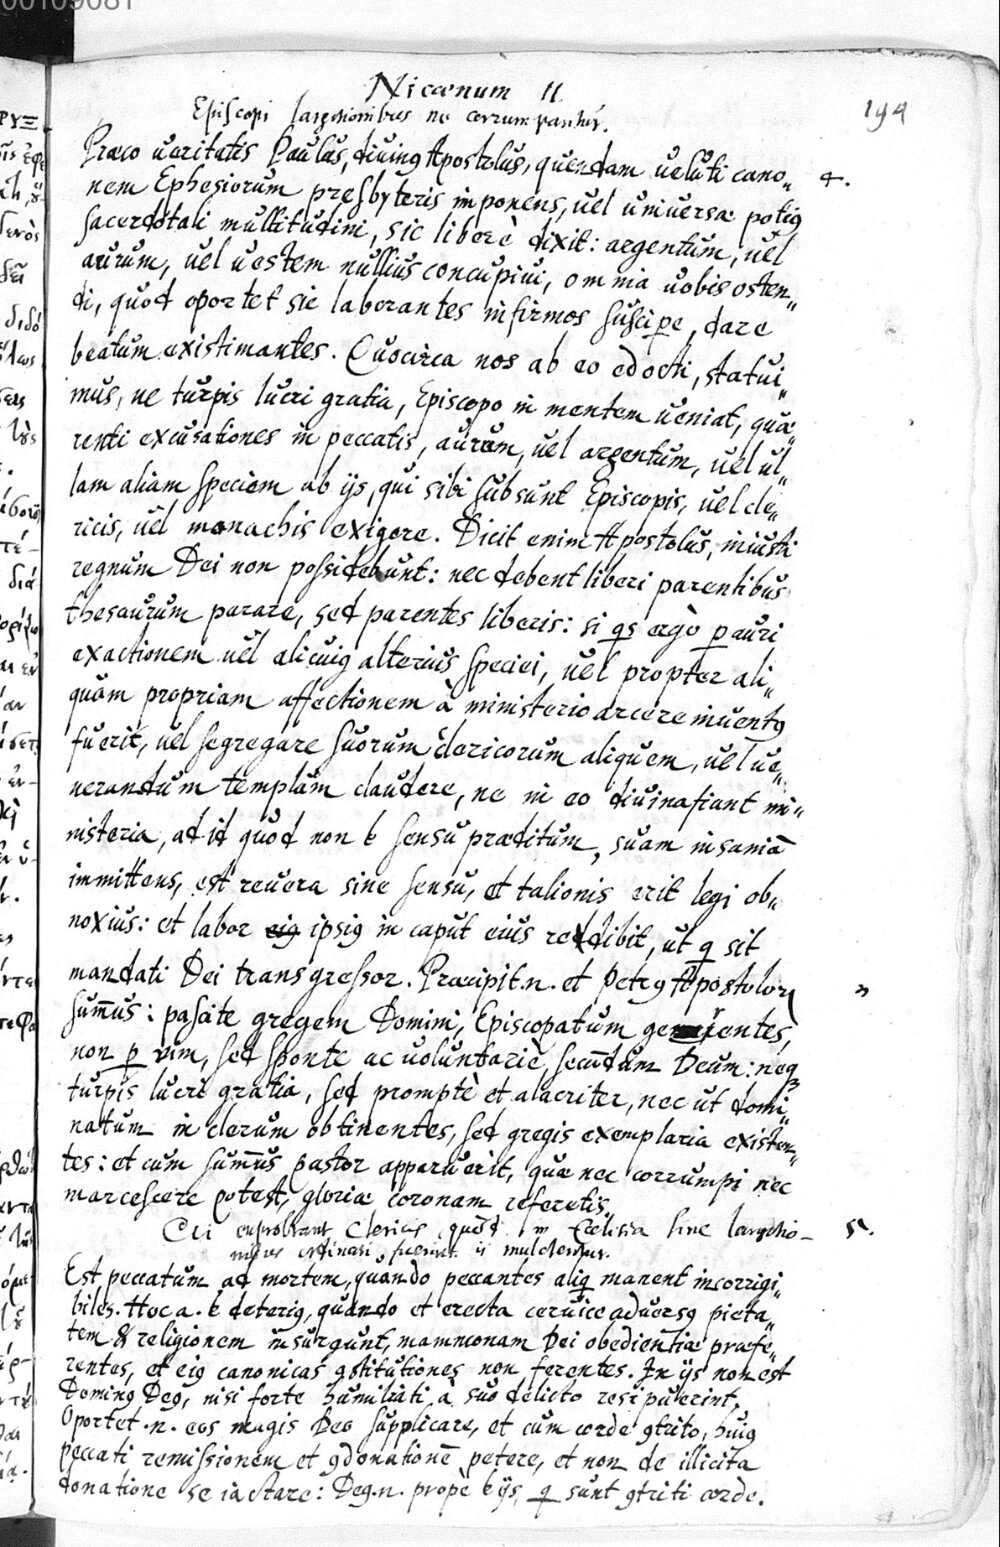 00109081
Nicænum II
194
Episcopi largitionibus ne corrumpantur.
Præco ueritatis Paulus, diuing Apostolus, quendam ueluti cano„
4.
nem Ephesiorum presbyteris imponens, uel uniuersæ potig
sacerdotali multitudini, sic liberè dixit: argentum, uel
aurum, uel uestem nullius concupiui, omnia uobis osten„
di, quod oportet sic laborantes infirmos suscipe, dare
beatum existimantes. Quocirca nos ab eo edocti, statui„
mus, ne turpis lucri gratia, Episcopo in mentem ueniat, quæ„
renti excusationes in peccatis, aurum, uel argentum, uel ul„
lam aliam speciem ab ijs, qui sibi subsunt Episcopis, uel cle„
ricis, uel monachis exigere. Dicit enim Apostolus, iniusti
regnum Dei non possidebunt: nec debent liberi parentibus
thesaurum parare, sed parentes liberis: si qs ergò p auri
exactionem uel alicuig alterius speciei, uel propter ali„
quam propriam affectionem à ministerio arcere inuentg
fuerit, uel segregare suorum clericorum aliquem, uel ue„
nerandum templum claudere, ne in eo diuina fiant mi„
nisteria, ad id quod non ē sensu præditum, suam insaniā
immittens, est reuera sine sensu, et talionis erit legi ob„
noxius: et labor eig ipsig in caput eius redibit, ut q sit
mandati Dei transgressor. Præcipit .n. et Petrg Apostolor
sum̄us: pascite gregem Domini, Episcopatum gerentes,
non p vim, sed sponte ac uoluntariè, secūdum Deum: neq
turpis lucri gratia, sed promptè et alacriter, nec ut domi„
natum in clerum obtinentes, sed gregis exemplaria existen„
tes: et cum sum̄us pastor apparuerit, quæ nec corrumpi nec
marcescere potest, gloriæ coronam referetis.
Qui exprobrant Clericis, quod in Ecclesia sine largitio-
5.
nibus ordinati fuerint ij mulctentur.
Est peccatum ad mortem, quando peccantes aliq manent incorrigi„
biles. Hoc a. ē deterig, quando et erecta ceruice aduersg pieta„
tem & religionem insurgunt, mammonam Dei obedientiæ præfe„
rentes, et eig canonicas 9stitutiones non ferentes. In ijs non est
Doming Deg, nisi forte humiliati à suo delicto resipuerint.
Oportet .n. eos magis Deo supplicare, et cum corde 9trito, huig
peccati remissionem et 9donationē petere, et non de illicita
donatione se iactare: Deg .n. propè ē ijs, q sunt 9triti corde.